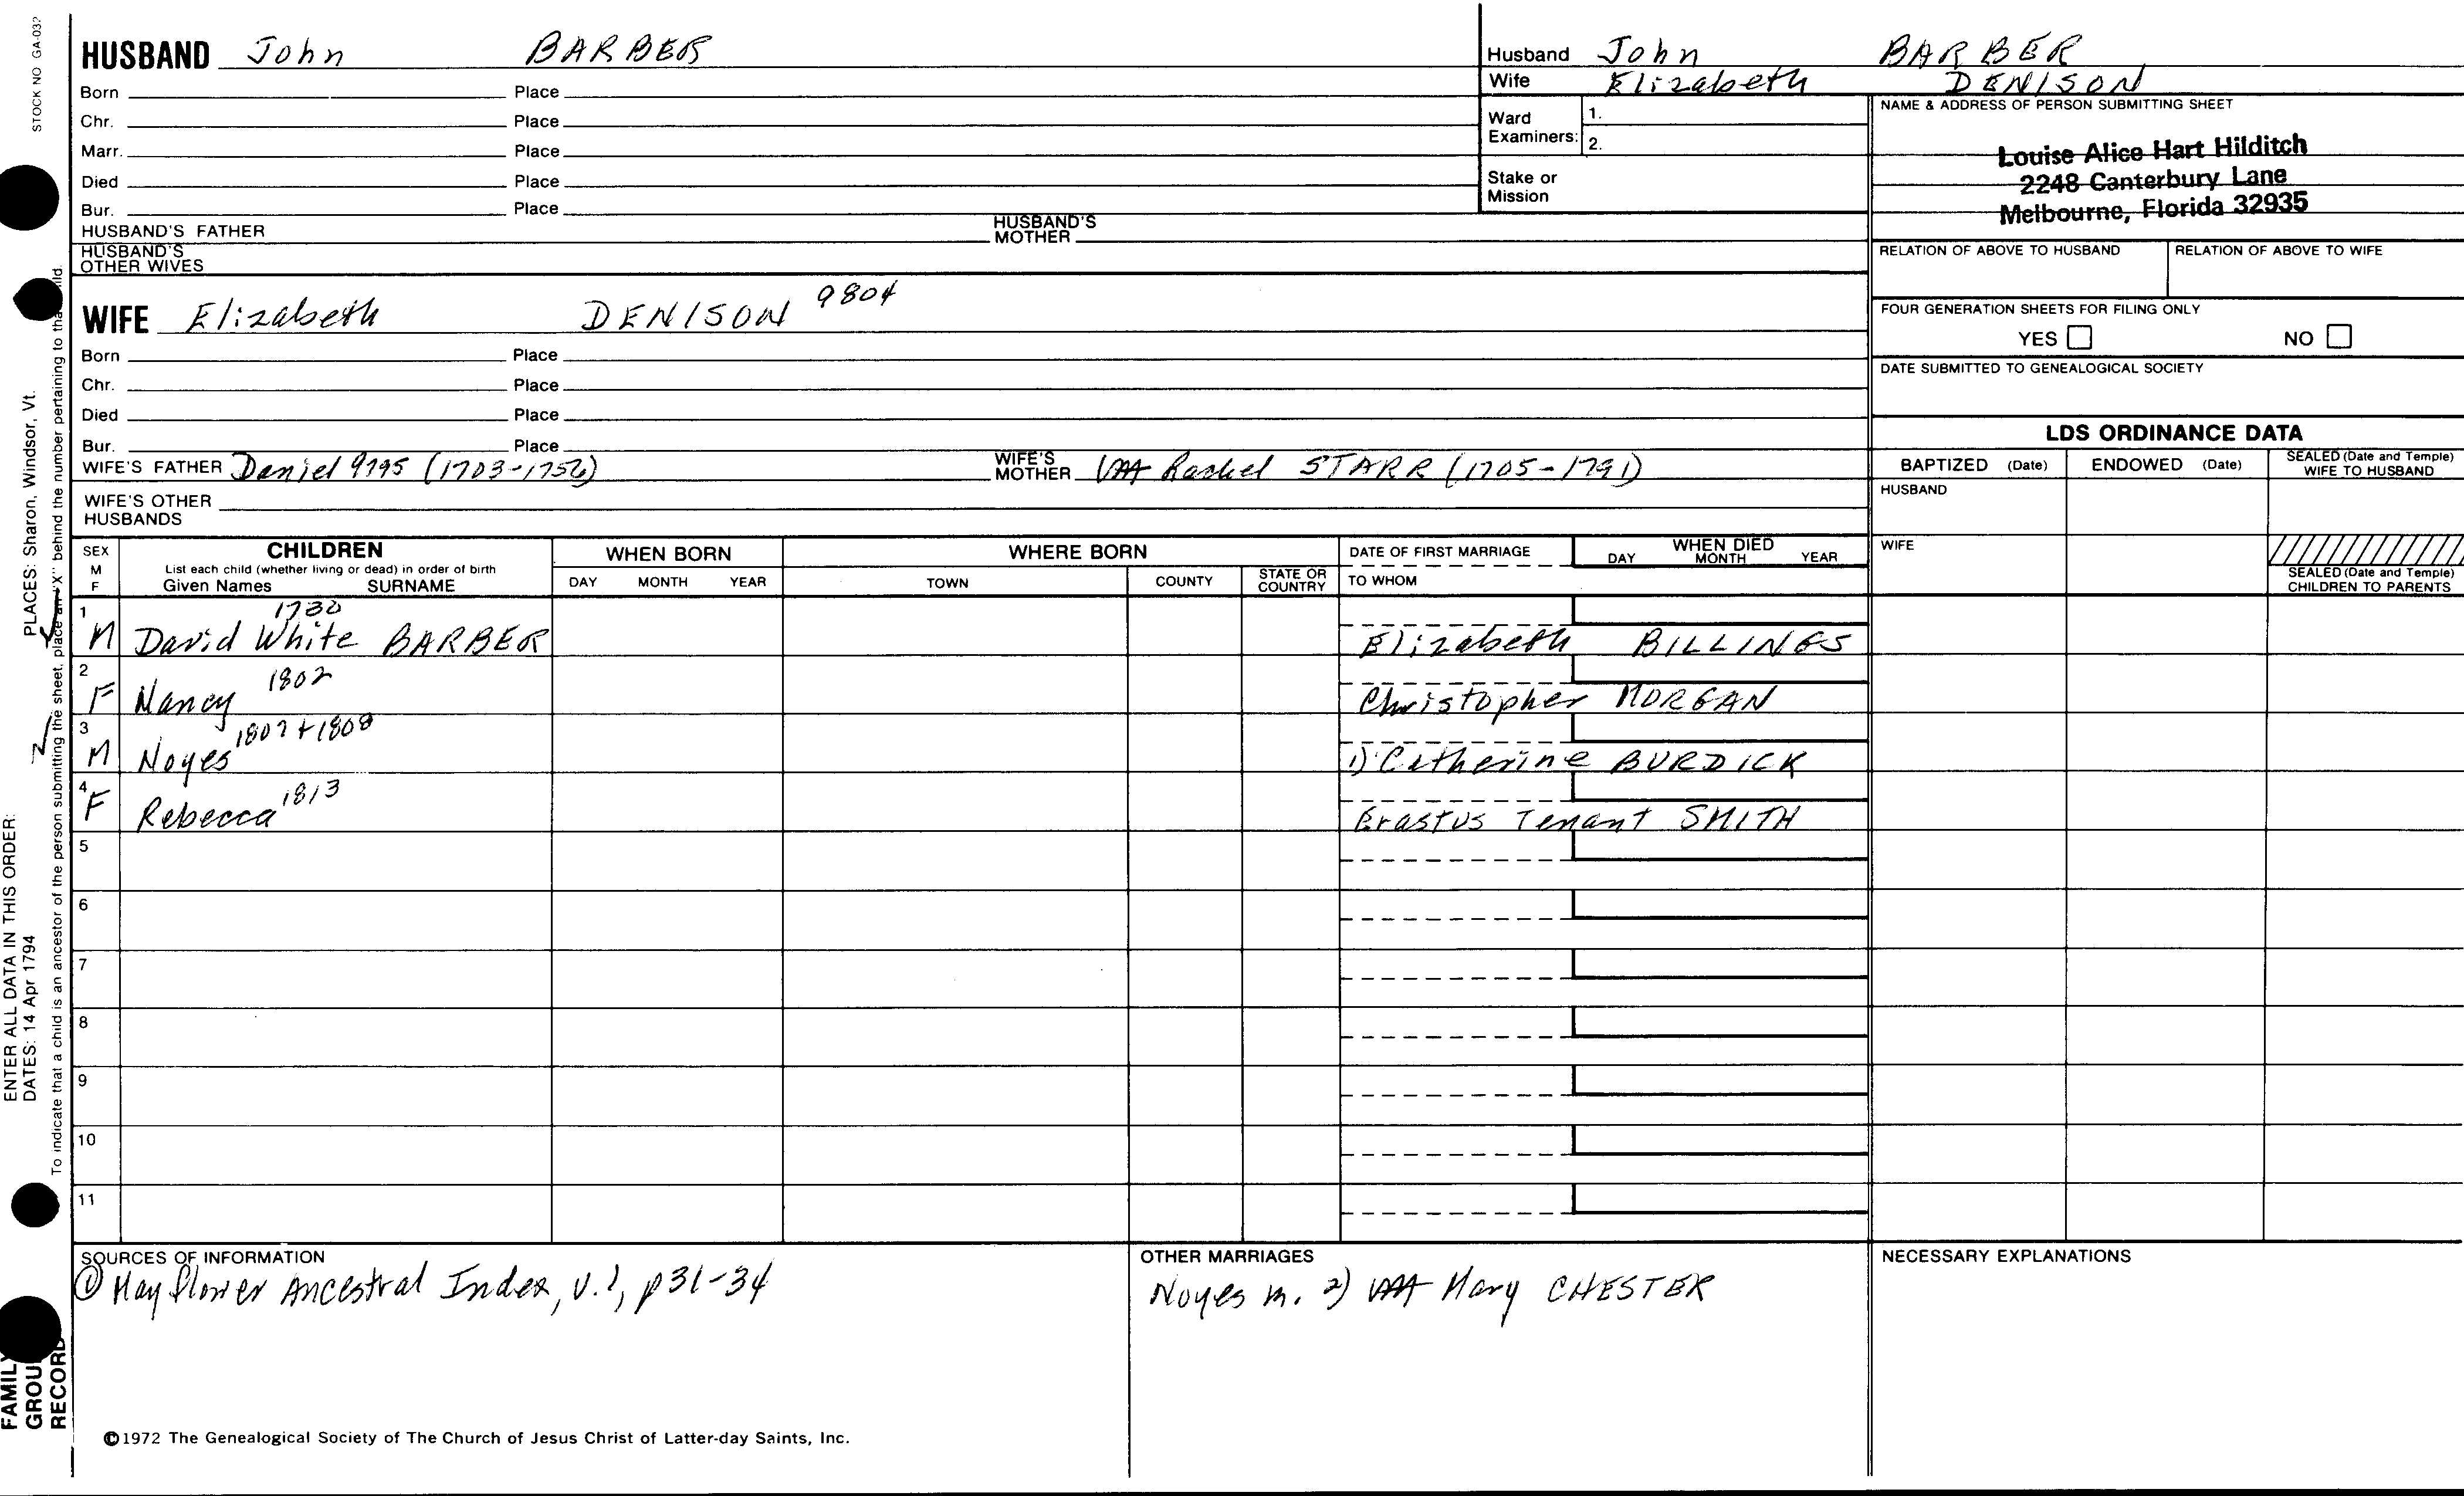 STOCK NO GA-032
HUSBAND John BARBER
Born Place
Chr. Place
Marr. Place
Died Place
Bur. Place
HUSBAND'S FATHER HUSBAND'S MOTHER
HUSBAND'S OTHER WIVES
WIFE Elizabeth DENISON 9804
Born Place
Chr. Place
Died Place
Bur. Place
WIFE'S FATHER Daniel 9795 (1703-1756) WIFE'S MOTHER Rachel STARR (1705-1791)
WIFE'S OTHER HUSBANDS
Husband John BARBER
Wife Elizabeth DENISON
Ward Examiners: 1.
2.
Stake or Mission
NAME & ADDRESS OF PERSON SUBMITTING SHEET
Louise Alice Hart Hilditch
2248 Canterbury Lane
Melbourne, Florida 32935
RELATION OF ABOVE TO HUSBAND RELATION OF ABOVE TO WIFE
FOUR GENERATION SHEETS FOR FILING ONLY
YES NO
DATE SUBMITTED TO GENEALOGICAL SOCIETY
LDS ORDINANCE DATA
BAPTIZED (Date) ENDOWED (Date) SEALED (Date and Temple) WIFE TO HUSBAND
HUSBAND
WIFE
SEALED (Date and Temple) CHILDREN TO PARENTS
SEX M F
CHILDREN
List each child (whether living or dead) in order of birth
Given Names SURNAME
WHEN BORN
DAY MONTH YEAR
WHERE BORN
TOWN COUNTY STATE OR COUNTRY
DATE OF FIRST MARRIAGE
TO WHOM
WHEN DIED
DAY MONTH YEAR
1 M David White BARBER 1730 Elizabeth BILLINGS
2 F Nancy 1802 Christopher MORGAN
3 M Noyes 1807+1808 1) Catherine BURDICK
4 F Rebecca 1813 Erastus Tenant SMITH
5
6
7
8
9
10
11
SOURCES OF INFORMATION
① Mayflower Ancestral Index, v.1, p31-34
OTHER MARRIAGES
Noyes m. 2) Mary CHESTER
NECESSARY EXPLANATIONS
©1972 The Genealogical Society of The Church of Jesus Christ of Latter-day Saints, Inc.
ENTER ALL DATA IN THIS ORDER:
DATES: 14 Apr 1794 PLACES: Sharon, Windsor, Vt.
To indicate that a child is an ancestor of the person submitting the sheet, place an "X" behind the number pertaining to that child.
FAMILY
GROUP
RECORD